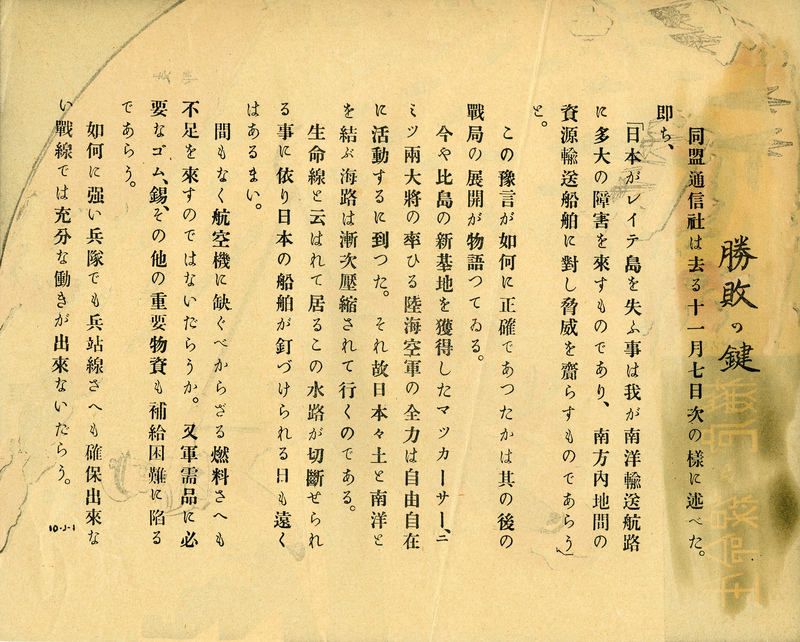 勝敗の鍵
同盟通信社は去る十一月七日次の様に述べた。
即ち、
「日本がレイテ島を失ふ事は我が南洋輸送航路
に多大の障害を來すものであり、南方内地間の
資源輸送船舶に對し脅威を齎らすものであらう」
と。
この豫言が如何に正確であつたかは其の後の
戰局の展開が物語つてゐる。
今や比島の新基地を獲得したマッカーサー、ニ
ミツ兩大將の率ひる陸海空軍の全力は自由自在
に活動するに到つた。それ故日本々土と南洋と
を結ぶ海路は漸次壓縮されて行くのである。
生命線と云はれて居るこの水路が切斷せられ
る事に依り日本の船舶が釘づけられる日も遠く
はあるまい。
間もなく航空機に缺ぐべからざる燃料さへも
不足を來すのではないだらうか。又軍需品に必
要なゴム、錫、その他の重要物資も補給困難に陷る
であらう。
如何に强い兵隊でも兵站線さへも確保出來な
い戰線では充分な働きが出來ないだらう。
10-J-1